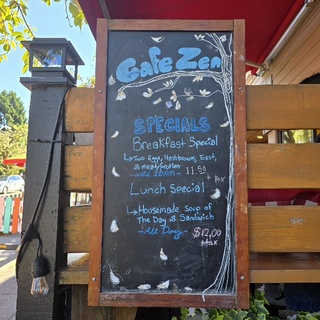 Cafe Zen
SPECIALS
Breakfast Special
Two Eggs, Hashbrowns, Toast,
& meat/
until 11.50
+ tax
Lunch Special
Housemade soup of
The Day & Sandwich
- All Day - $12.00
+tax